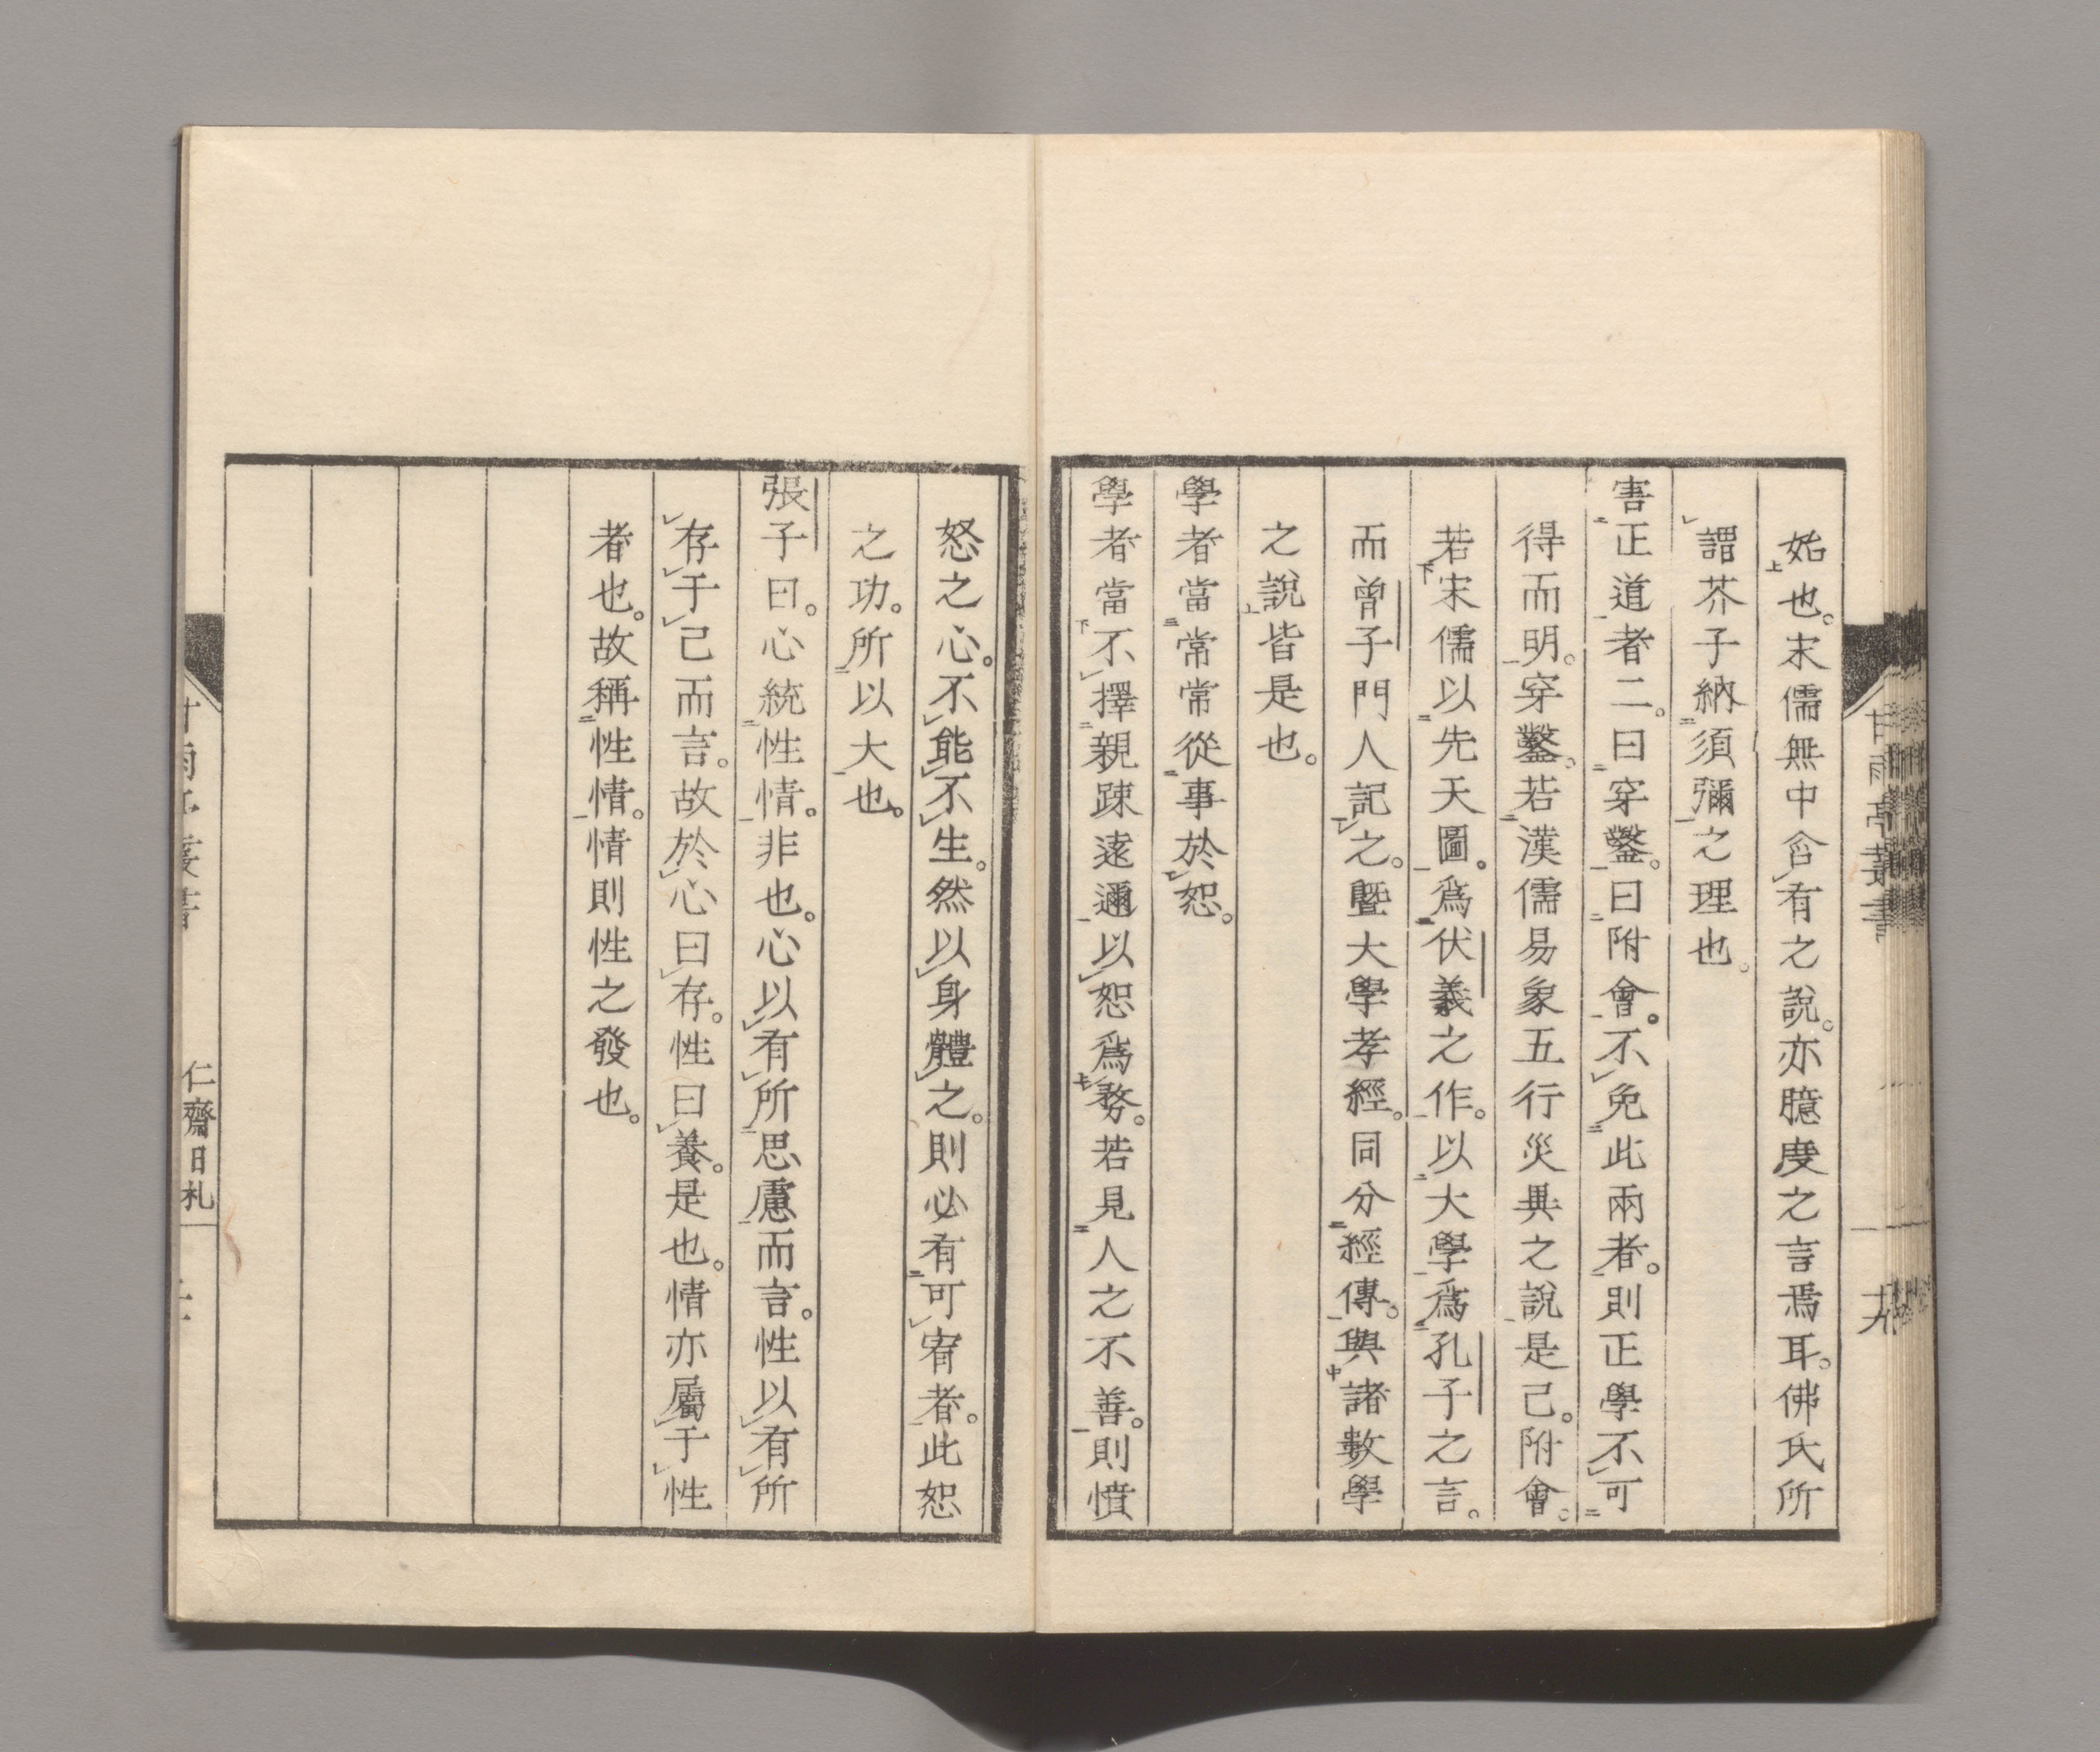 始也。宋儒無中含有之說。亦臆度之言焉耳。佛氏所
謂芥子納須彌之理也。
害正道者二。曰穿鑿。曰附會。不免此兩者。則正學不可
得而明。穿鑿。若漢儒易象五行災異之說是已。附會。
若宋儒以先天圖。爲伏羲之作。以大學爲孔子之言。
而曾子門人記之。曁大學孝經。同分經傳。與諸數學
之說皆是也。
學者當常常從事於恕。
學者當不擇親踈遠邇以恕爲務。若見人之不善。則憤
怒之心。不能不生。然以身體之。則必有可宥者。此恕
之功。所以大也。
張子曰。心統性情。非也。心以有所思慮而言。性以有所
存于己而言。故於心曰存。性曰養。是也。情亦屬于性
者也。故稱性情。情則性之發也。
甘雨亭叢書
十九
仁齋日札